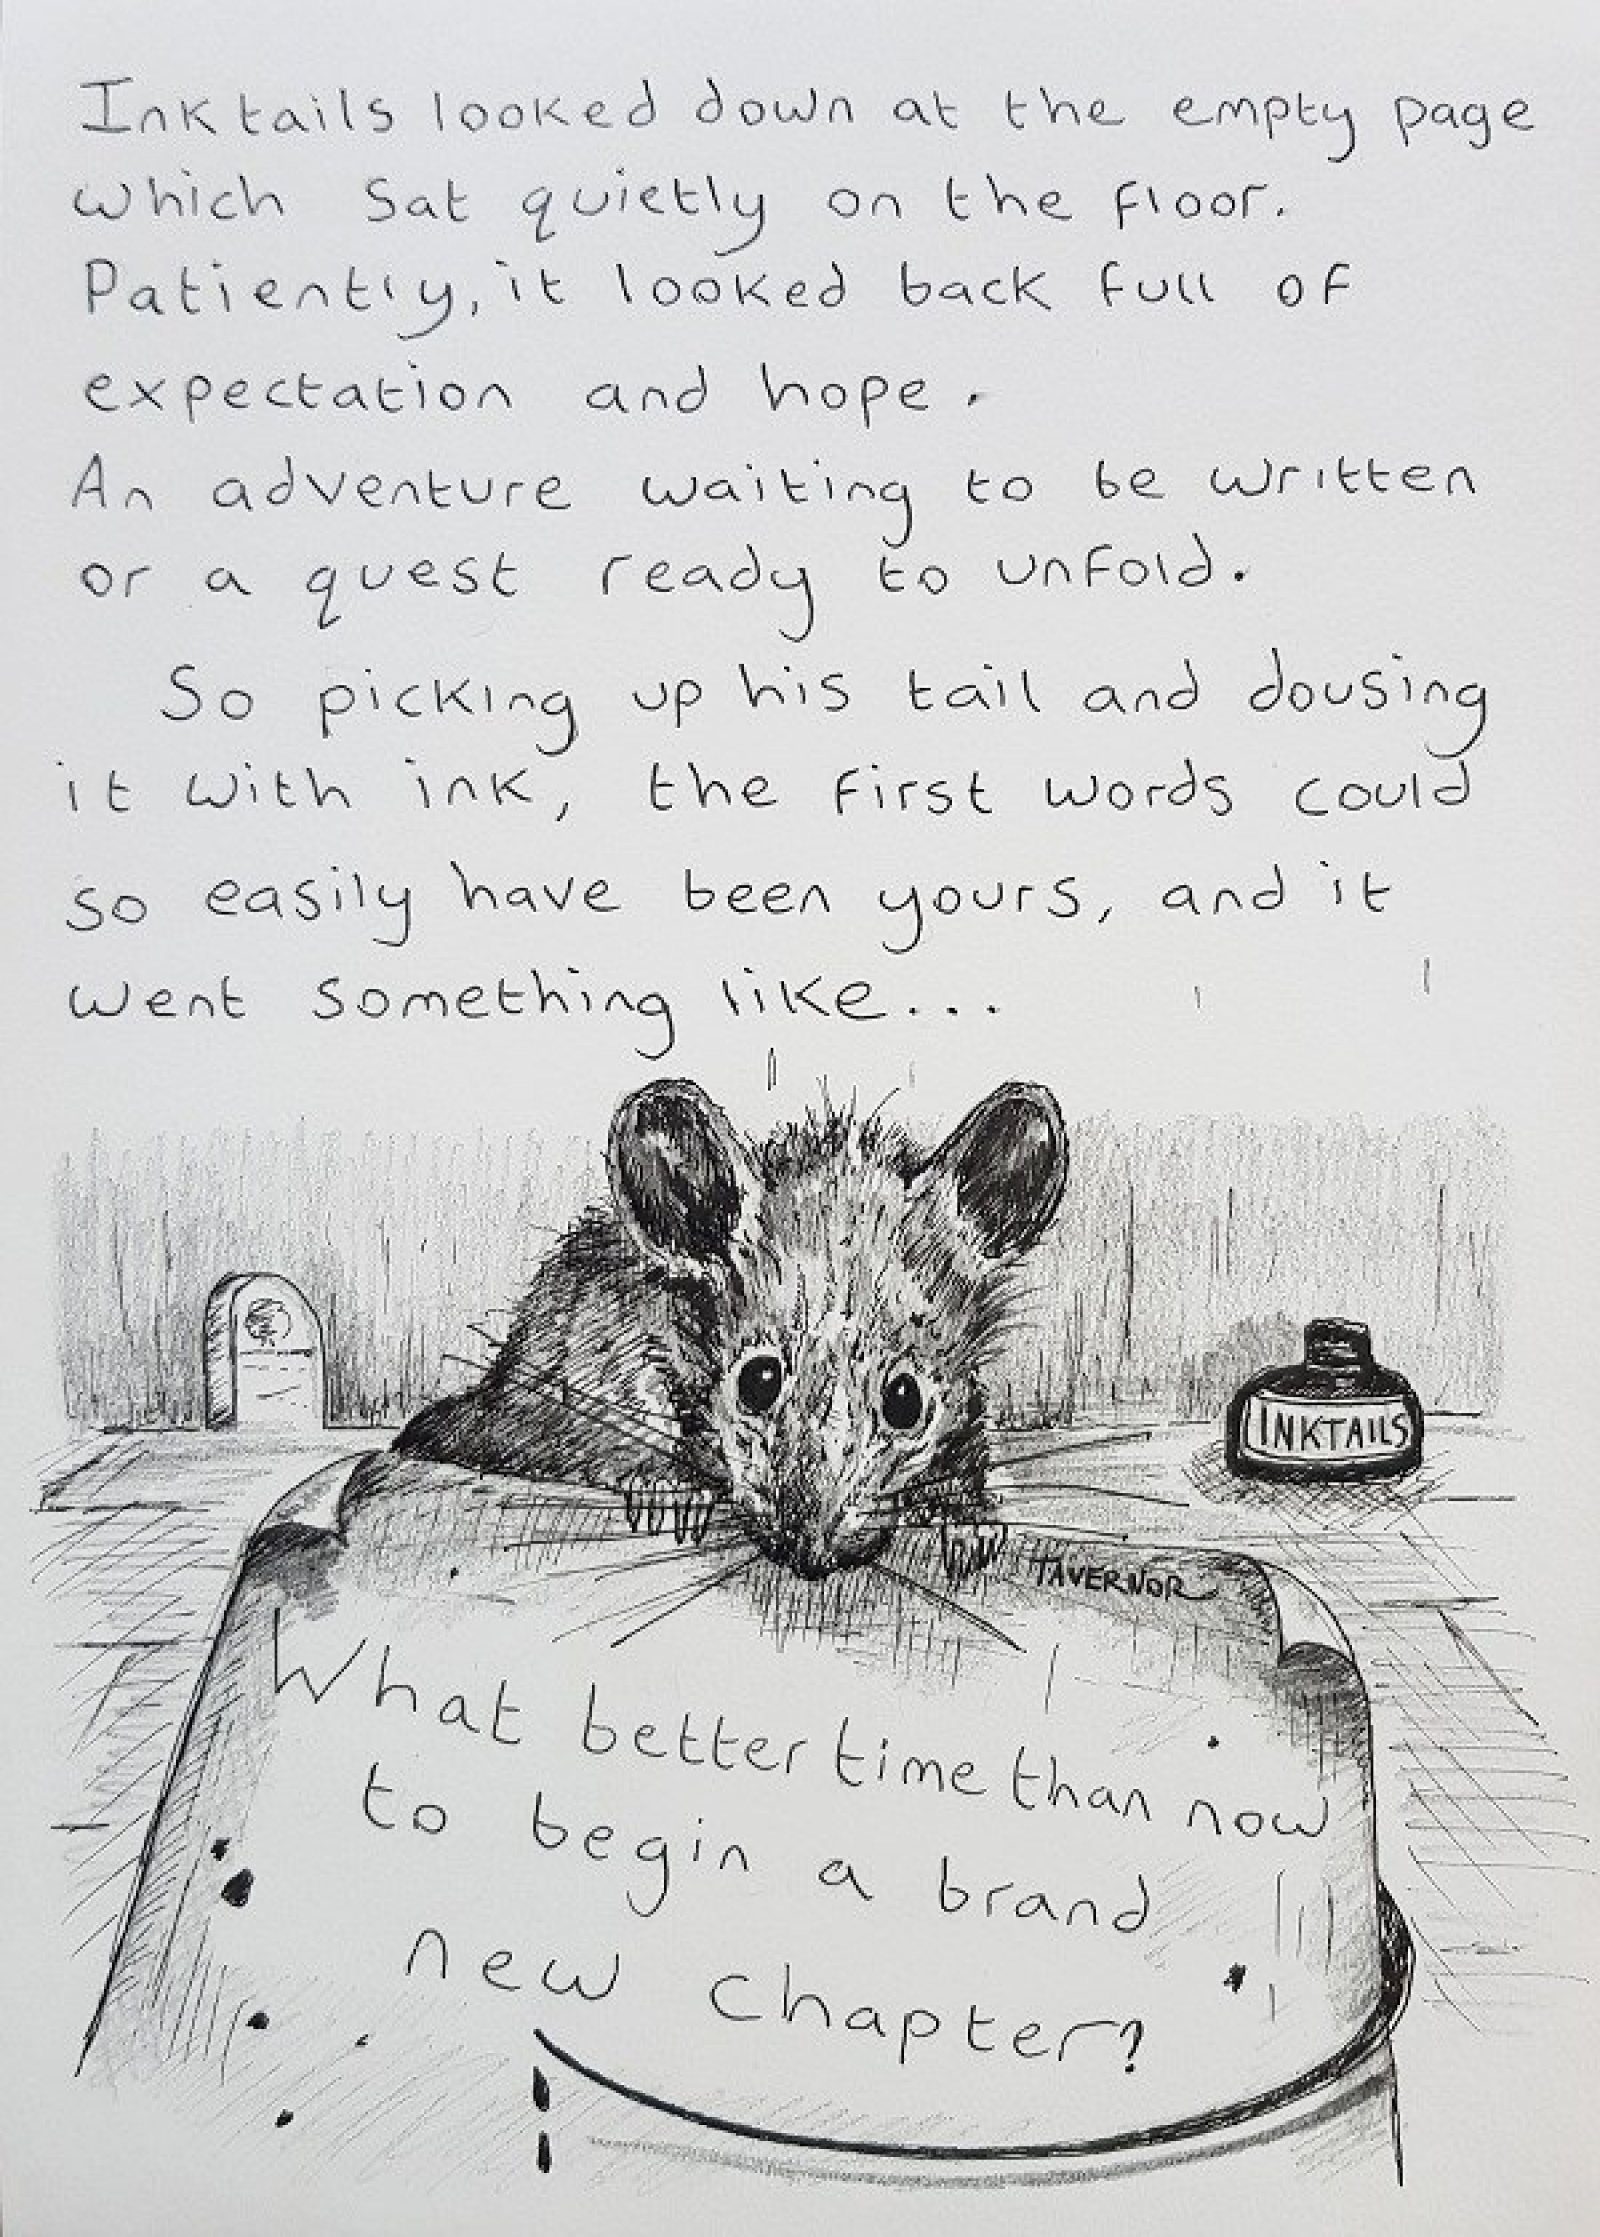 Inktails looked down at the empty page
which sat quietly on the floor.
Patiently, it looked back full of
expectation and hope.
An adventure waiting to be written
or a quest ready to unfold.
So picking up his tail and dousing
it with ink, the first words could
so easily have been yours, and it
went something like...
INKTAILS
TAVERNOR
What better time than now
to begin a brand
new chapter?